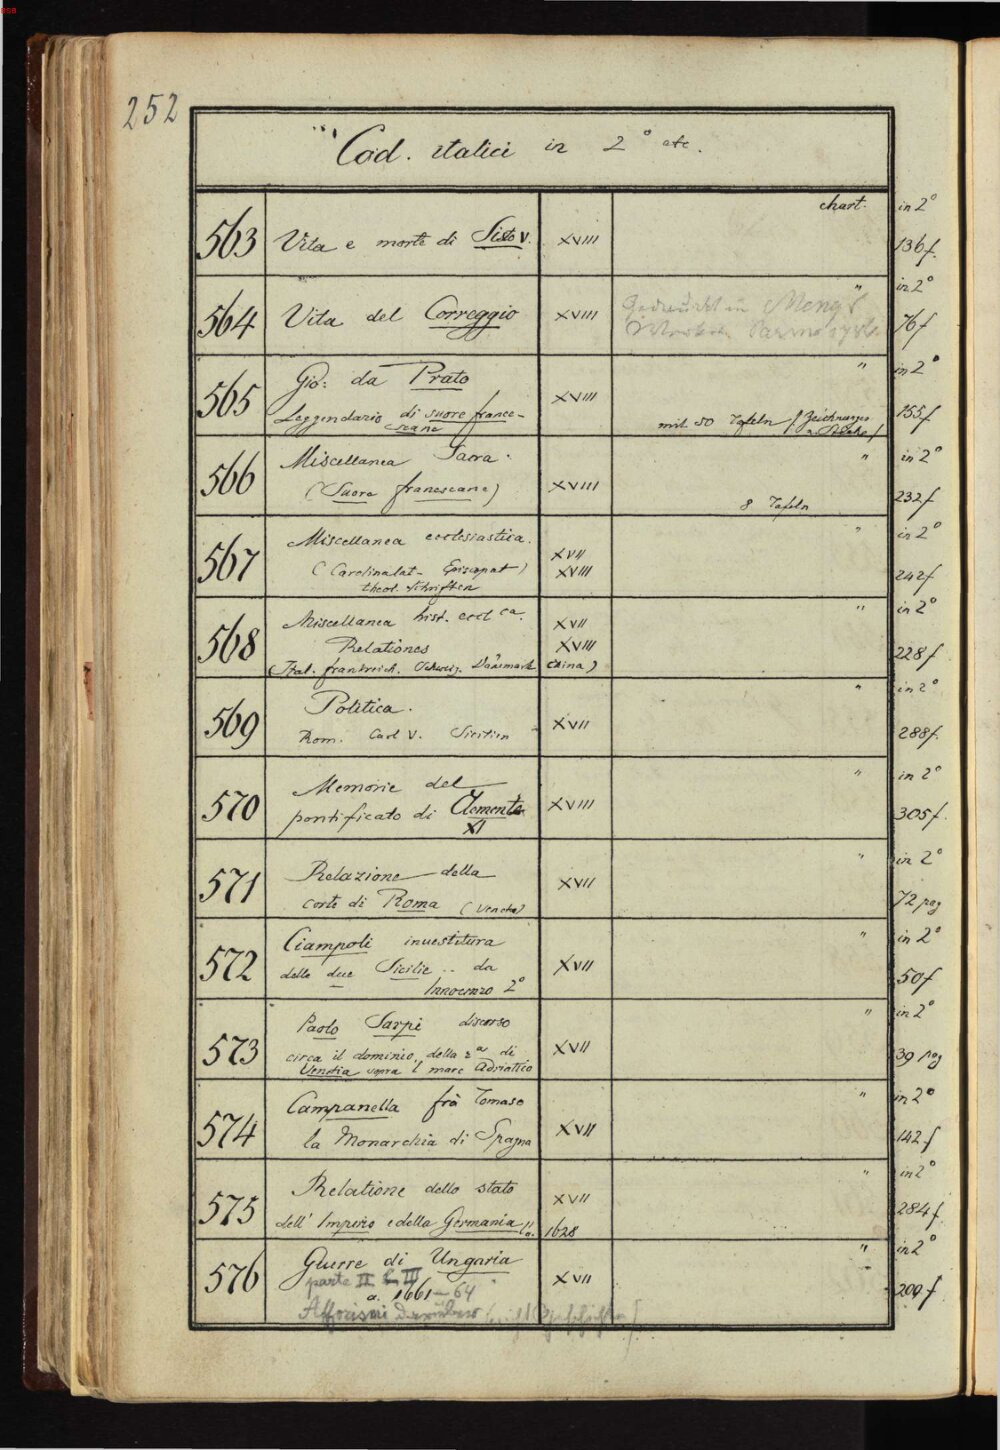 BSB
252
Cod. italici in 2° etc.
chart. in 2°
563 Vita e morte di Sisto V. XVIII 136 f.
" in 2°
564 Vita del Correggio XVIII Gedruckt in Mengs
76 f
" in 2°
565 Gio: da Prato XVIII
Leggendario di suore france- mit 50 Tafeln (Zeichnungen 155 f
scane
" in 2°
566 Miscellanea Sacra.
(Suore francescane) XVIII 232 f
8 Tafeln
" in 2°
567 Miscellanea ecclesiastica. XVII
(Cardinalat- Episcopat) XVIII 242 f
theol. Schriften
" in 2°
568 Miscellanea hist. eccl ca. XVII
Relationes XVIII 228 f
(Ital. Frankreich. Schweiz. Dänemark China)
" in 2°
569 Politica. XVII
Rom. Carl V. Sicilien 288 f.
" in 2°
570 Memorie del XVIII
pontificato di Clemente 305 f.
XI
" in 2°
571 Relazione della XVII
corte di Roma (Veneta) 72 pag
" in 2°
572 Ciampoli investitura
delle due Sicilie .. da XVII 50 f
Innocenzo 2°
" in 2°
573 Paolo Sarpi discorso XVII
circa il dominio della di 39 pag
Venetia sopra l mare Adriatico
" in 2°
574 Campanella frà Tomaso XVII
la Monarchia di Spagna 142 f
" in 2°
575 Relatione dello stato XVII
dell' Imperio e della Germania a. 1628 284 f
" in 2°
576 Guerre di Ungaria XVII
parte II & III " 209 f
a. 1661–64
Afforismi